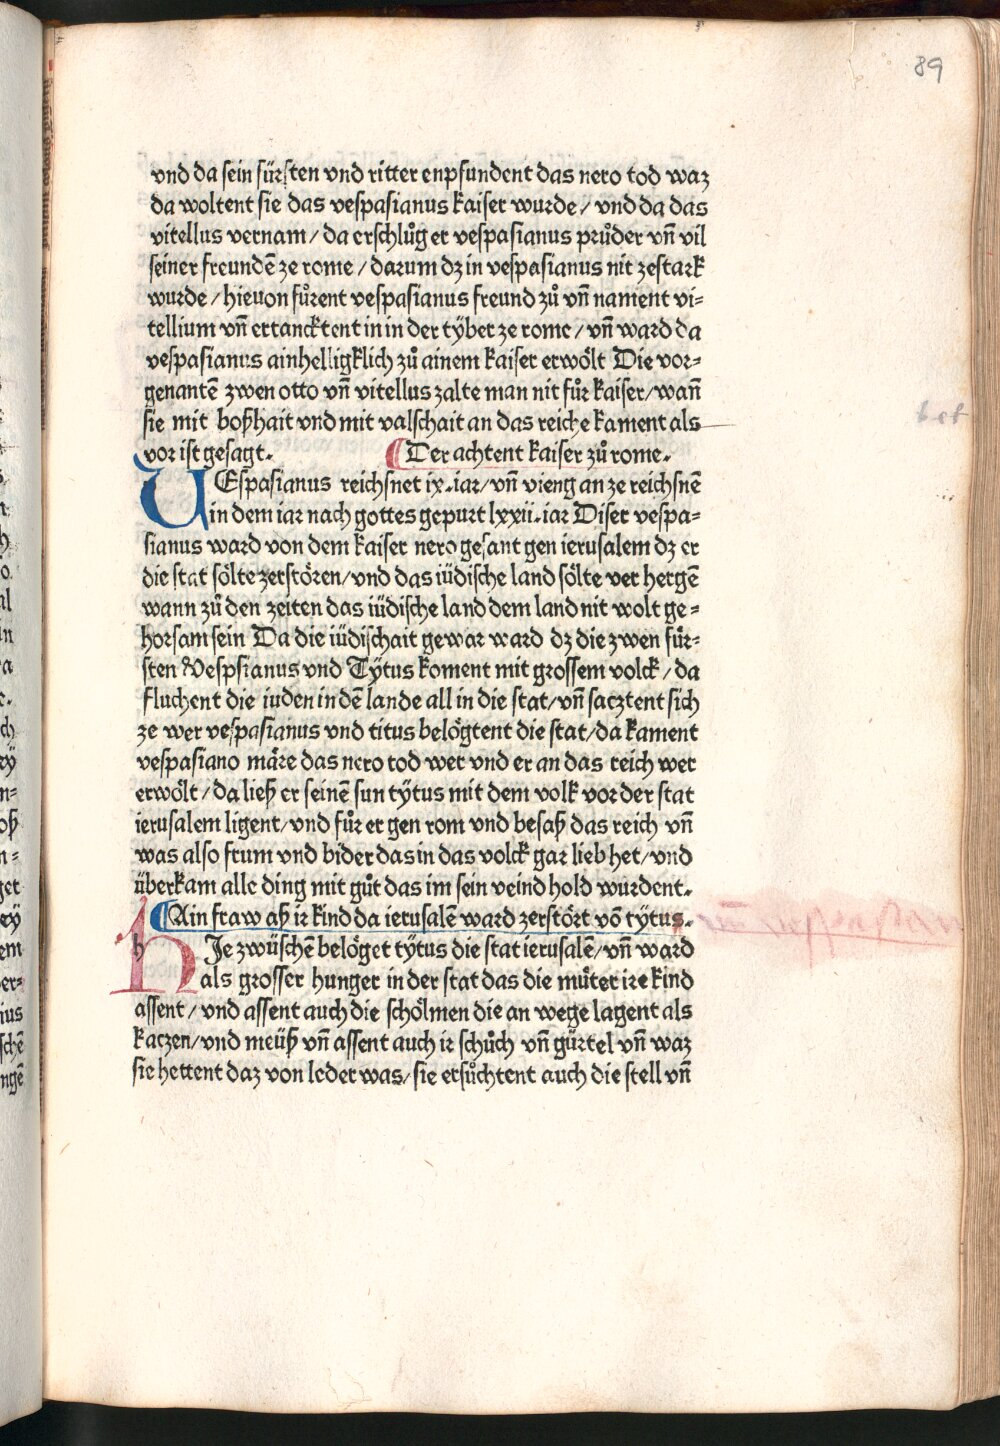 89
vnd da sein fürsten vnd ritter enpfundent das nero tod waz
da woltent sie das vespasianus kaiser wurde / vnd da das
vitellus vernam / da erschlůg er vespasianus průder vñ vil
seiner freundē ze rome / darum dz in vespasianus nit ze stark
wurde / hieuon fůrent vespasianus freund zů vñ nament vi=
tellium vñ ertancktent in in der tÿber ze rome / vñ ward da
vespasianus ainhelligklich zů ainem kaiser erwölt Die vor=
genantē zwen otto vñ vitellus zalte man nit fůr kaiser / wañ
sie mit boßhait vnd mit valschait an das reiche kament als
vor ist gesagt. ¶ Der achtent kaiser zů rome.
VEspasianus reichsnet ix. iar / vñ vieng an ze reichsnē
in dem iar nach gottes gepurt lxxii. iar Diser vespa=
sianus ward von dem kaiser nero gesant gen ierusalem dz er
die stat sölte zerstören / vnd das iüdische land sölte ver hergē
wann zů den zeiten das iüdische land dem land nit wolt ge=
horsam sein Da die iüdischait gewar ward dz die zwen für=
sten Vespsianus vnd Tÿtus koment mit grossem volck / da
fluchent die iuden in dē lande all in die stat / vñ sacztent sich
ze wer vespasianus vnd titus belögtent die stat / da kament
vespasiano märe das nero tod wer vnd er an das reich wer
erwölt / da ließ er seinē sun tÿtus mit dem volk vor der stat
ierusalem ligent / vnd fůr er gen rom vnd besaß das reich vñ
was also frum vnd bider das in das volck gar lieb het / vnd
überkam alle ding mit gůt das im sein veind hold wurdent.
¶ Ain fraw aß ir kind da ierusalē ward zerstört vō tÿtus.
hJe zwüschē belöget tÿtus die stat ierusalē / vñ ward
als grosser hunger in der stat das die můter ire kind
assent / vnd assent auch die schölmen die an wege lagent als
kaczen / vnd meüß vñ assent auch ir schůch vñ gürtel vñ waz
sie hettent daz von leder was / sie ersůchtent auch die stell vñ